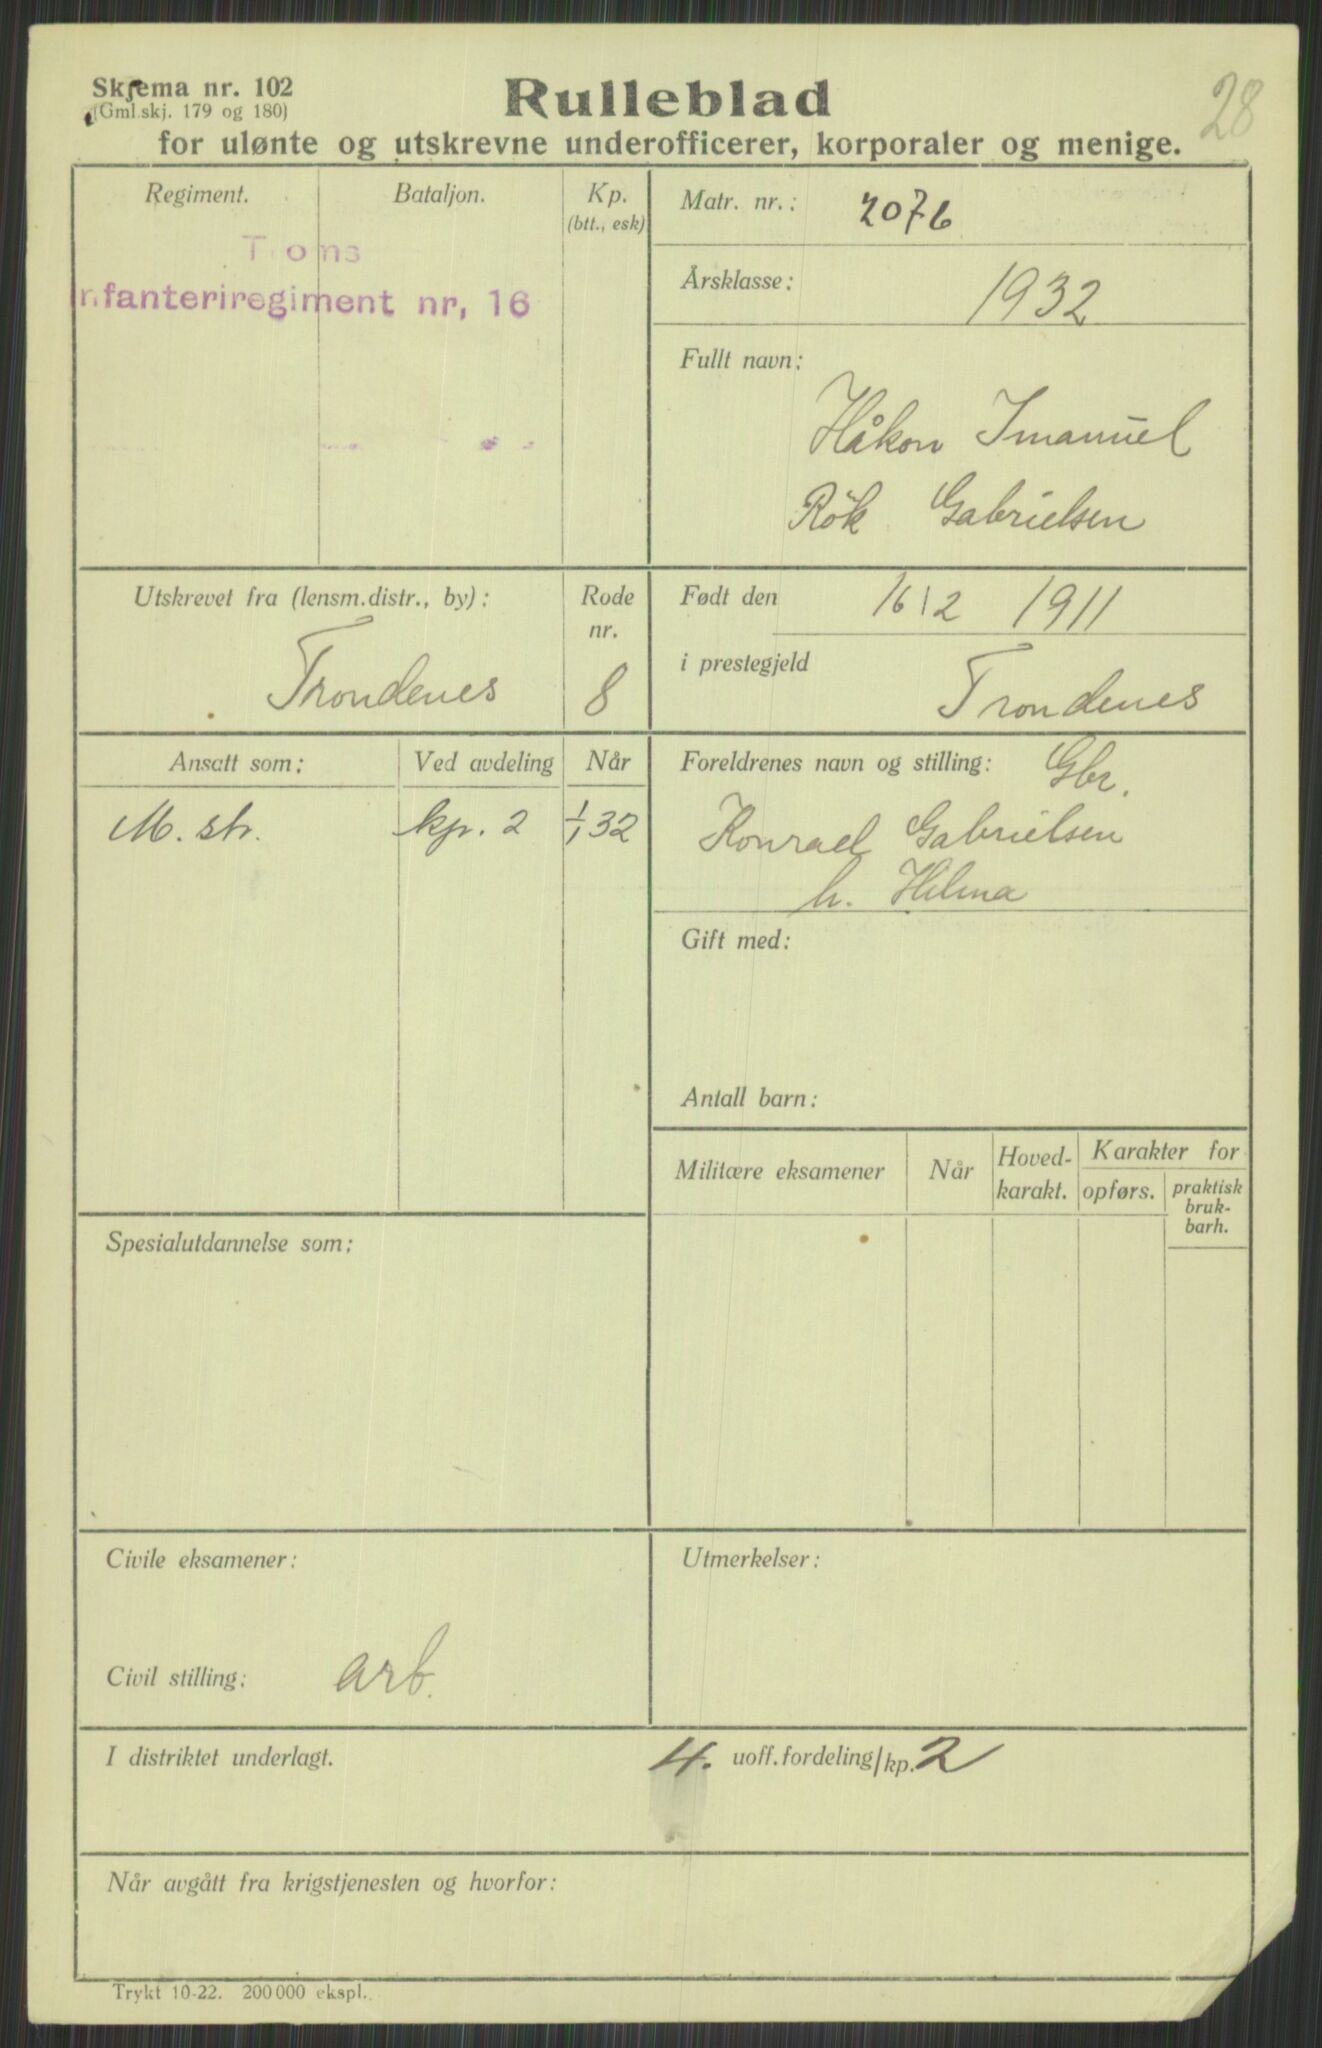 Skjema nr. 102
(Gml. skj. 179 og 180)
Rulleblad
28
for ulønte og utskrevne underofficerer, korporaler og menige.
Regiment.
Bataljon.
Kp.
(btt., esk)
Troms
nfanteriregiment nr, 16
Matr. nr.: 2076
Årsklasse: 1932
Fullt navn:
Håkon Imanuel
Rök Gabrielsen
Utskrevet fra (lensm.distr., by):
Trondenes
Rode
nr.
8
Født den 16/2 1911
i prestegjeld Trondenes
Ansatt som:
Ved avdeling
Når
M. str. kp. 2 1/1 32
Foreldrenes navn og stilling: Gbr.
Konrad Gabrielsen
h. Hilma
Gift med:
Antall barn:
Militære eksamener
Når
Hoved-
karakt.
Karakter for
opførs.
praktisk
bruk-
barh.
Spesialutdannelse som:
Civile eksamener:
Civil stilling: arb.
Utmerkelser:
I distriktet underlagt. 4. uoff. fordeling/kp. 2
Når avgått fra krigstjenesten og hvorfor:
Trykt 10-22. 200 000 ekspl.